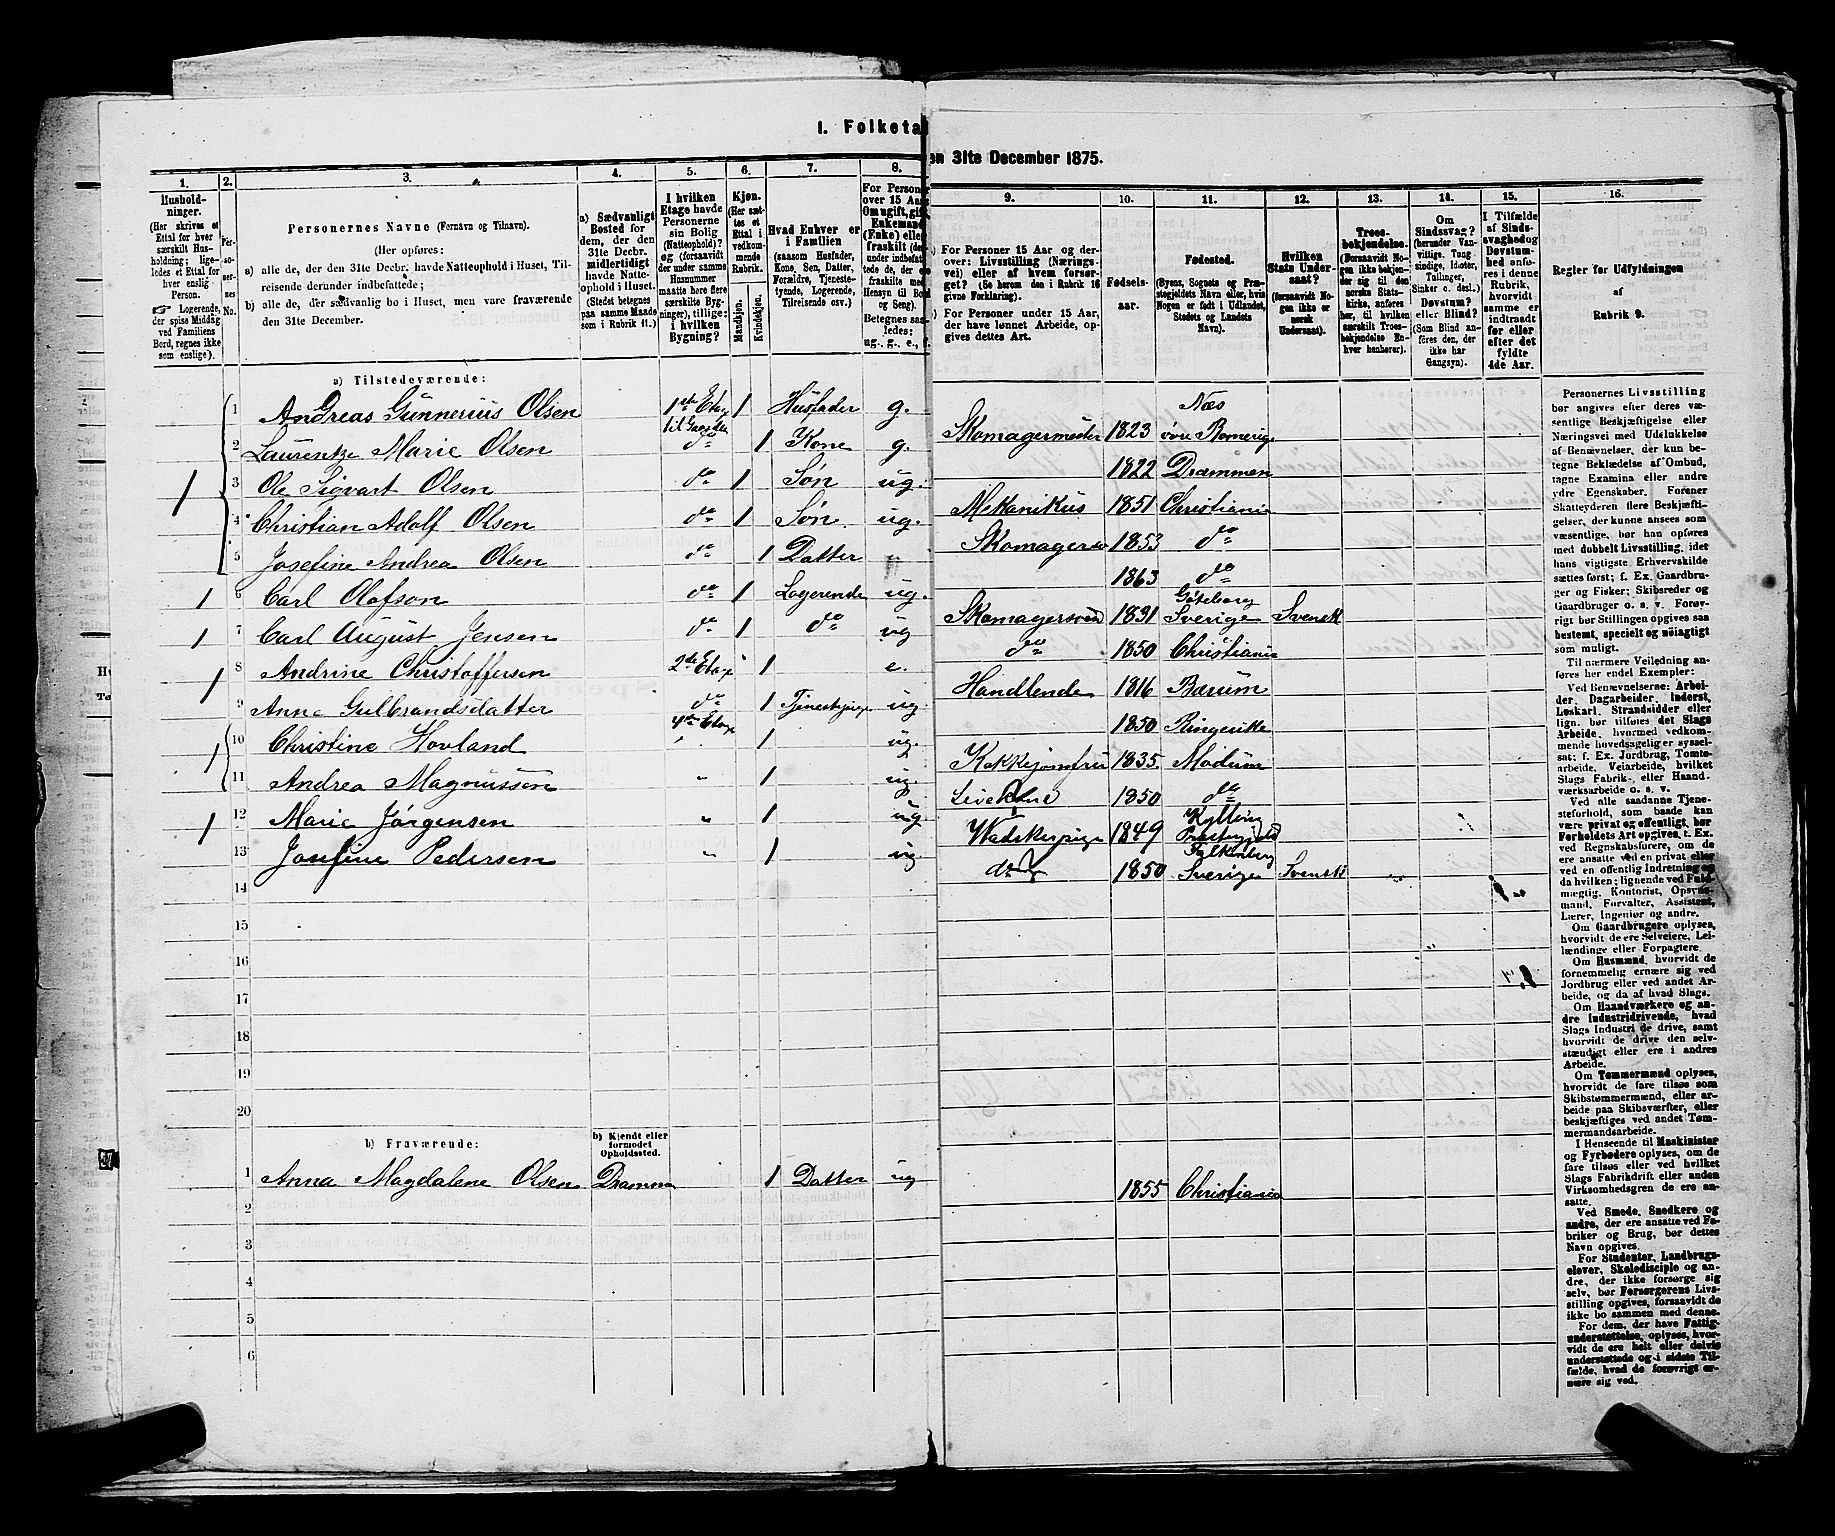 I. Folketa
en 31te December 1875.
1.
Hushold-
ninger.
(Her skrives et
Ettal for hver
særskilt Hus-
holdning; lige-
ledes et Ettal for
hver enslig
Person.
Logerende,
der spise Middag
ved Familiens
Bord, regnes ikke
som enslige).
2.
Per-
so-
ner-
nes
No.
3.
Personernes Navne (Fornavn og Tilnavn).
(Her opføres:
a) alle de, der den 31te Decbr. havde Natteophold i Huset, Til-
reisende derunder indbefattede;
b) alle de, der sædvanlig bo i Huset, men vare fraværende
den 31te December.
4.
a) Sædvanligt
Bosted for
dem, der den
31te Decbr.
midlertidigt
havde Natte-
ophold i Huset.
(Stedet betegnes
paa samme Maade
som i Rubrik 11.)
5.
I hvilken
Etage havde
Personerne
sin Bolig
(Natteophold)?
og (forsaavidt
der under samme
Husnummer
maatte høre flere
særskilte Byg-
ninger), tillige:
i hvilken
Bygning?
6.
Kjøn.
(Her sæt-
tes et
Ettal i
vedkom-
mende
Rubrik.
Mandkjøn.
Kvindekjøn.
7.
Hvad Enhver er
i Familien
(saasom Husfader,
Kone, Søn, Datter,
Forældre, Tjeneste-
tyende, Logerende,
Tilreisende osv.)
8.
For Personer
over 15 Aar
Om ugift, gift,
Enkemand
(Enke) eller
fraskilt (de
under indbefat-
tede de, der ere
fraskilte med
Hensyn til Bord
og Seng).
Betegnes saa-
ledes:
ug., g., e., f.
9.
For Personer 15 Aar og der-
over: Livsstilling (Nærings-
vei) eller af hvem forsør-
get? (Se herom den i Rubrik 16
givne Forklaring).
For Personer under 15 Aar,
der have lønnet Arbeide, op-
gives dettes Art.
10.
Fødsels-
aar.
11.
Fødested.
(Byens, Sognets og Præ-
stegjeldets Navn eller, hvis
Nogen er født i Udlandet,
Stedets og Landets
Navn).
12.
Hvilken
Stats Under-
saat?
(forsaavidt No-
gen ikke er
norsk
Undersaat).
13.
Troes-
bekjendelse.
(Forsaavidt No-
gen ikke bekjen-
der sig til den
norske Stats-
kirke, anføres
her, til hvilken
særskilt Troes-
bekjendelse En-
hver henhører).
14.
Om
Sindssvag?
(herunder Van-
vittige, Tung-
sindige, Idioter,
Tullinger,
Sinker o. desl.)
Døvstum?
eller Blind?
(Som Blind an-
føres den, der
ikke har
Gangsyn).
15.
I Tilfælde
af Sinds-
svaghed og
Døvstum-
hed anfø-
res i denne
Rubrik,
hvorvidt
samme er
indtraadt
før eller
efter det
fyldte
4de Aar.
16.
Regler for Udfyldningen
af
Rubrik 9.
a) Tilstedeværende:
1 1 Andreas Gunnerius Olsen 1ste Etag til Gaarden 1 Husfader g. Skomagermester 1823 Næs øvre Romerige
2 Laurentze Marie Olsen do 1 Kone g. 1822 Drammen
3 Ole Sigvart Olsen do 1 Søn ug. Mekanikus 1851 Christiania
4 Christian Adolf Olsen do 1 Søn ug. Skomagersv 1853 do
5 Josefine Andrea Olsen do 1 Datter 1863 do
1 6 Carl Olafson do 1 Logerende ug. Skomagersvend 1831 Göteborg Sverige Svensk
1 7 Carl August Jensen do 1 do ug do 1850 Christiania
1 8 Andrine Christoffersen 2de Etage 1 e. Handlende 1816 Bærum
9 Anna Gulbrandsdatter do 1 Tjenestepige ug. 1850 Ringerike
1 10 Christine Hovland 4de Etage 1 ug. Kokkejomfru 1835 Modum
11 Andrea Magnussen " 1 ug. 1850 do
1 12 Marie Jørgensen " 1 ug. Vadskerpige 1849
13 Josefine Pedersen " 1 ug do 1850 Falkenberg Sverige Svensk
14
15
16
17
18
19
20
b) Fraværende:
b) Kjendt eller
formodet
Opholdssted.
1 Anna Magdalene Olsen Drammen 1 Datter ug 1855 Christiania
2
3
4
5
6
Personernes Livsstilling
bør angives efter deres væ-
sentlige Beskjæftigelse eller
Næringsvei med Udelukkelse
af Benævnelser, der kun be-
tegne Beklædelse af Ombud,
tagne Examina eller andre
ydre Egenskaber. Forener
Skatteyderen flere Beskjæfti-
gelser, der kunne ansees som
væsentlige, bør han opføres
med dobbelt Livsstilling, idet
hans vigtigste Erhvervskilde
sættes først; f. Ex. Gaardbru-
ger og Fisker; Skibsreder og
Gaardbruger o. s. v. Forøv-
rigt bør Stillingen opgives saa
bestemt, specielt og nöiagtigt
som muligt.
Til nærmere Veiledning an-
føres her endel Exempler:
Ved Benævnelserne: Arbei-
der, Dagarbeider, Inderst,
Løskarl, Strandsidder eller
lign. bør tilføies det Slags
Arbeide, hvormed vedkom-
mende hovedsagelig er syssel-
sat; f. Ex. Jordbrug, Tomte-
arbeide, Veiarbeide, hvilket
Slags Fabrik- eller Haand-
værksarbeide o. s. v.
Ved alle saadanne Tjene-
steforhold, som baade kan
være privat og offentligt, bør
Forholdets Art opgives, t. Ex.
ved Regnskabsførere, om de
ere ansatte ved en privat eller
ved en offentlig Indretning og
da hvilken; lignende ved Fuld-
mægtig, Kontorist, Opsyns-
mand, Forvalter, Assistent,
Lærer, Ingeniør og andre.
Om Gaardbrugere oplyses,
hvorvidt de ere Selveiere, Lei-
lændinge eller Forpagtere.
Om Husmænd, hvorvidt de
fornemmelig ernære sig ved
Jordbrug eller ved andet Ar-
beide, og da af hvad Slags.
Om Haandværkere og an-
dre Industridrivende, hvad
Slags Industri de drive, samt
hvorvidt de drive den selv-
stændigt eller ere i andres
Arbeide.
Om Tømmermænd oplyses,
hvorvidt de fare tilsøs som
Skibstømmermænd, eller ar-
beide paa Skibsværfter, eller
beskjæftiges ved andet Tøm-
mermandsarbeide.
I Henseende til Maskinister
og Fyrbødere oplyses, om de
fare tilsøs eller ved hvilket
Slags Fabrikdrift eller anden
Virksomhedsgren de ere an-
satte.
Ved Smede, Snedkere og
andre, der ere ansatte ved Fa-
briker og Brug, bør dettes
Navn opgives.
For Studenter, Landbrugs-
elever, Skoledisciple og an-
dre, der ikke forsørge sig
selv, bør Forsørgerens Livs-
stilling opgives, forsaavidt de
ikke bo sammen med denne.
For dem, der have Fattig-
understøttelse, oplyses, hvor-
vidt de ere helt eller delvis
understøttede og i sidste Til-
fælde, hvad de forøvrigt er-
nære sig ved.